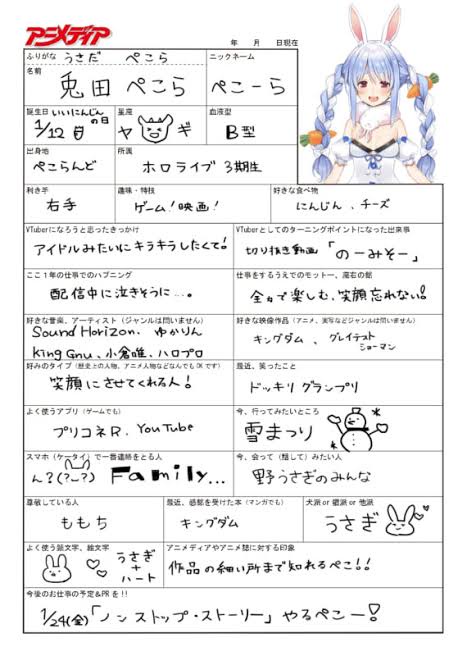 アニメディア
年 月 日現在
ふりがな うさだ ぺこら
ニックネーム
名前 兎田 ぺこら
ぺこーら
誕生日 いいにんじんの日
1/12
星座
ヤギ
血液型
B型
出身地
ぺこらんど
所属
ホロライブ 3期生
利き手
右手
趣味・特技
ゲーム!映画!
好きな食べ物
にんじん、チーズ
VTuberになろうと思ったきっかけ
アイドルみたいにキラキラしたくて!
VTuberとしてのターニングポイントになった出来事
切り抜き動画「のーみそー」
ここ1年の仕事でのハプニング
配信中に泣きそうに…。
仕事をするうえでのモットー、座右の銘
全力で楽しむ、笑顔忘れない!
好きな音楽、アーティスト(ジャンルは問いません)
Sound Horizon、ゆかりん
King Gnu、小倉唯、ハロプロ
好きな映像作品(アニメ、実写などジャンルは問いません)
キングダム、グレイテスト
ショーマン
好みのタイプ(歴史上の人物、アニメ人物などなんでもOKです)
笑顔にさせてくれる人!
最近、笑ったこと
ドッキリグランプリ
よく使うアプリ(ゲームでも)
プリコネR、YouTube
今、行ってみたいところ
雪まつり
スマホ(ケータイ)で一番連絡をとる人
ん?(?-?) Family...
今、会って(話して)みたい人
野うさぎのみんな
尊敬している人
ももち
最近、感銘を受けた本(マンガでも)
キングダム
犬派or猫派or他派
うさぎ
よく使う顔文字、絵文字
うさぎ
+
ハート
アニメディアやアニメ誌に対する印象
作品の細い所まで知れるぺこ!!
今後のお仕事の予定&PRを!!
1/24(金)「ノンストップ・ストーリー」やるぺこー!